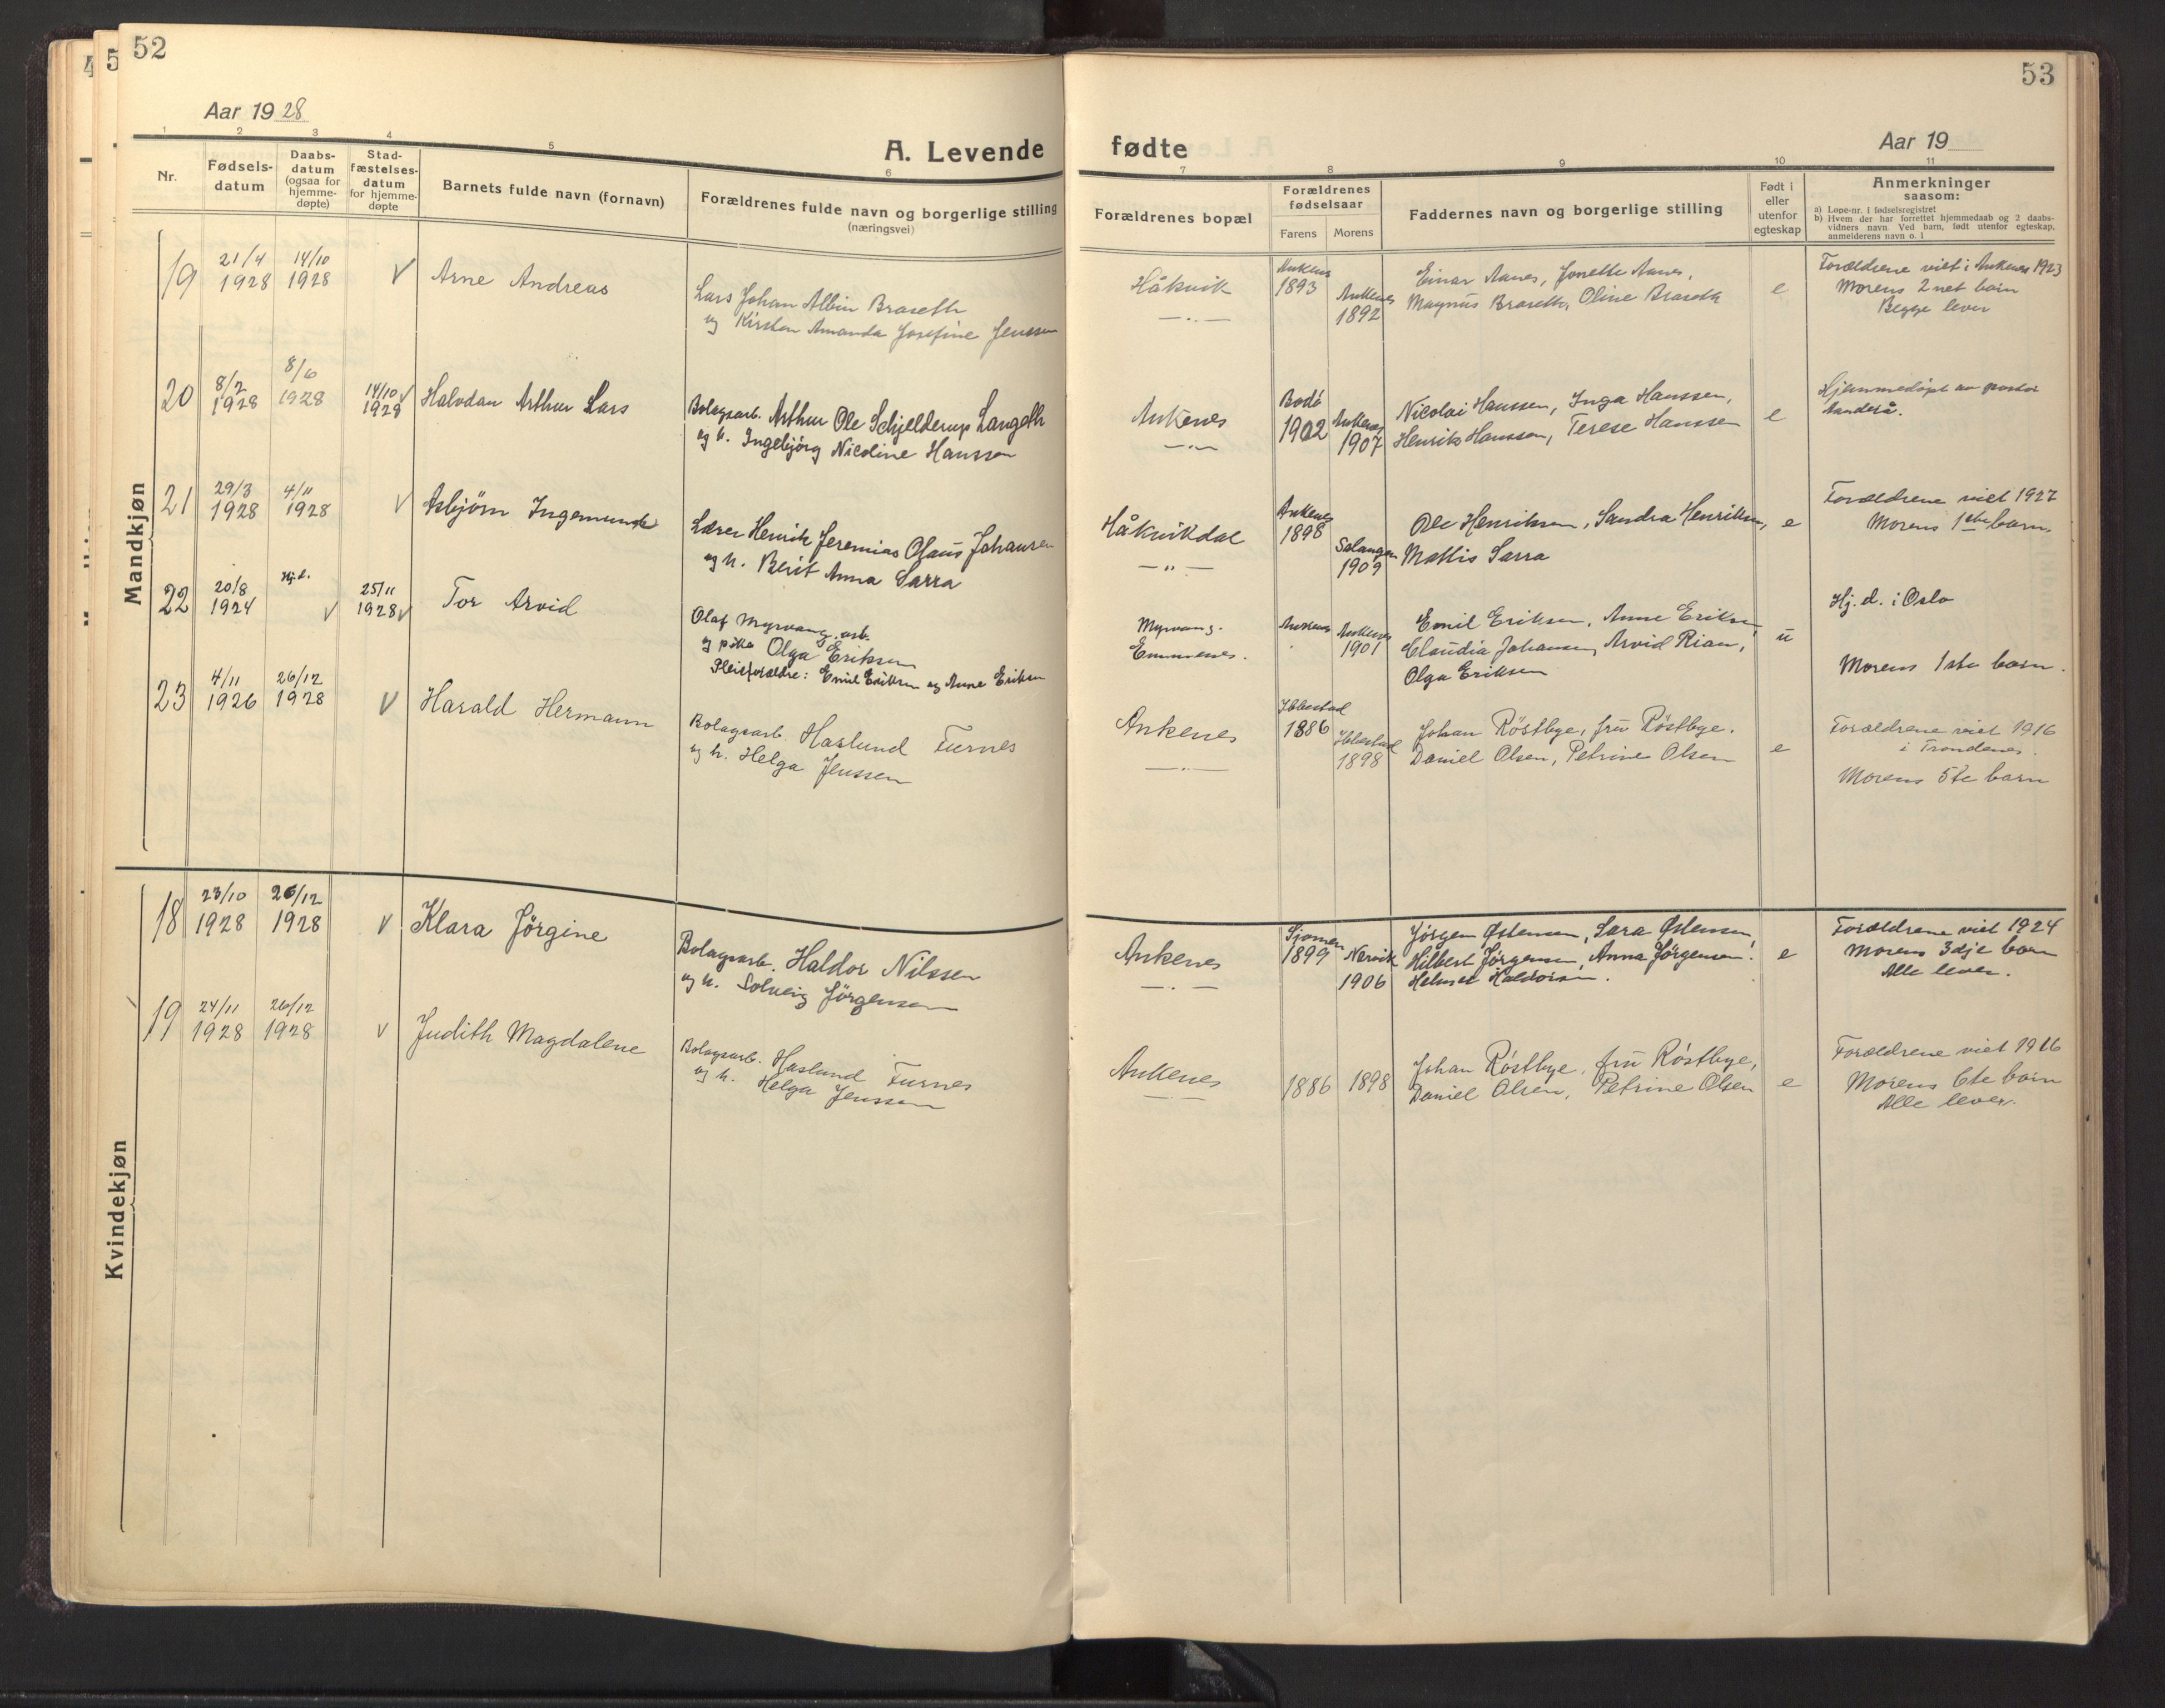 52
Aar 1928
A. Levende
1 2 3 4 5 6
Nr.
Fødsels-
datum
Daabs-
datum
(ogsaa for
hjemme-
døpte)
Stad-
fæstelses-
datum
for hjemme-
døpte
Barnets fulde navn (fornavn)
Forældrenes fulde navn og borgerlige stilling
(næringsvei)
Mandkjøn
19
21/4
1928
14/10
1928
V
Arne Andreas
Lars Johan Albin Braseth
og Kirsten Amanda Josefine Jenssen
20
8/2
1928
8/6
1928
14/10 V
1928
Halvdan Arthur Lars
Bolagsarb. Arthur Ole Schjelderup Langeth
og h. Ingebjörg Nicoline Hanssen
21
29/3
1928
4/11
1928
V
Asbjörn Ingemund
Lærer Henrik Jeremias Olaus Johansen
og h. Berit Anna Sarra
22
20/8
1924
Hj.d.
V
25/11
1928 V
Tor Arvid
Olaf Myrvang, arb.
og pike Olga Eriksen
Pleieforældre: Emil Eriksen og Anne Eriksen
23
4/11
1926
26/12
1928
V
Harald Hermann
Bolagsarb. Haslund Furnes
og h. Helga Jenssen
Kvindekjøn
18
23/10
1928
26/12
1928
V
Klara Jörgine
Bolagsarb. Haldor Nilssen
og h. Solveig Jörgensen
19
24/11
1928
26/12
1928
V
Judith Magdalene
Bolagsarb. Haslund Furnes
og h. Helga Jenssen
53
fødte
Aar 19
7 8 9 10 11
Forældrenes bopæl
Forældrenes
fødselsaar
Farens Morens
Faddernes navn og borgerlige stilling
Født i
eller
utenfor
egteskap
Anmerkninger
saasom:
a) Løpe-nr. i fødselsregistret
b) Hvem der har forrettet hjemmedaab og 2 daabs-
vidners navn. Ved barn, født utenfor egteskap,
anmelderens navn o. l
Håkvik
— " —
Ankenes
1893
Ankenes
1892
Einar Aanes, Jonette Aanes,
Magnus Braseth, Oline Braseth
e
Forældrene viet i Ankenes 1923
Morens 2net barn
Begge lever
Ankenes
— " —
Bodö
1902
Ankenes
1907
Nicolai Hanssen, Inga Hanssen,
Henrik Hanssen, Terese Hanssen
e
Hjemmedöpt av pastor
Håkvikdal
— " —
Ankenes
1898
Salangen
1909
Ole Henriksen, Sandra Henriksen,
Mattis Sarra
e
Forældrene viet 1927
Morens 1ste barn.
Myrvang.
Emmenes.
Ankenes
Ankenes
1901
Emil Eriksen, Anne Eriksen,
Claudia Johansen, Arvid Rian,
Olga Eriksen
u
Hj. d. i Oslo
Morens 1ste barn.
Ankenes
— " —
Ibbestad
1886
Ibbestad
1898
Johan Röstbye, fru Röstbye.
Daniel Olsen, Petrine Olsen
e
Forældrene viet 1916
i Trondenes.
Morens 5te barn
Ankenes
— " —
Sjomen
1899
Narvik
1906
Jörgen Østensen, Sara Østensen,
Hilbert Jörgensen, Anna Jörgensen.
Helmer Haldorsen.
e
Forældrene viet 1924
Morens 3dje barn
Alle lever.
Ankenes
— —
1886 1898
Johan Röstbye, fru Röstbye,
Daniel Olsen, Petrine Olsen
e
Forældrene viet 1916
Morens 6te barn
Alle lever.